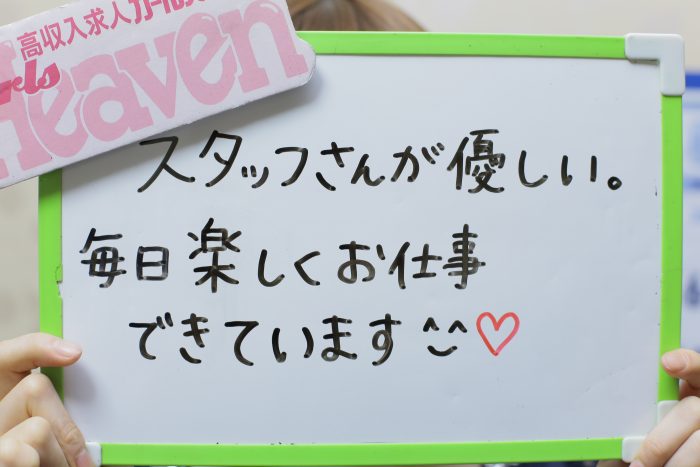 高収入求人ガールズ
Heaven
スタッフさんが優しい。
毎日楽しくお仕事
できています^^♡